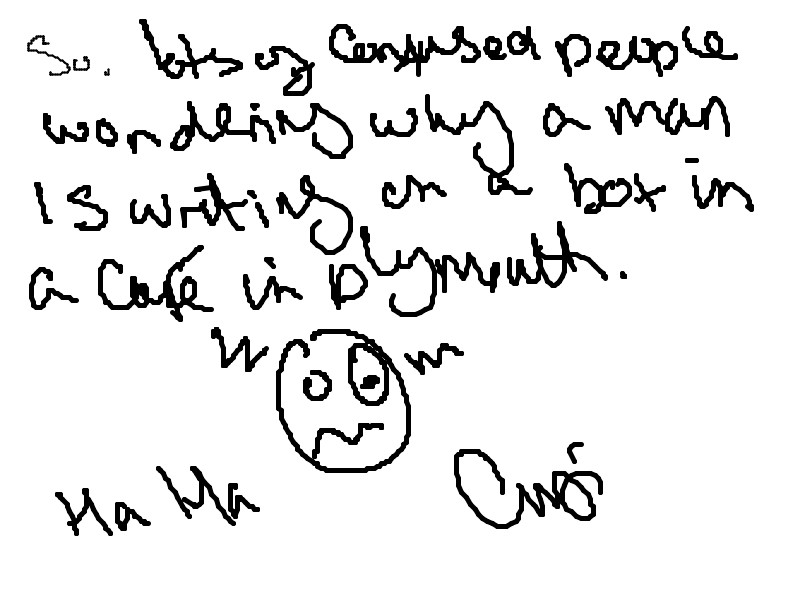 So. lots of confused people
wondering why a man
is writing on a box in
a Café in Plymouth.
Ha Ha